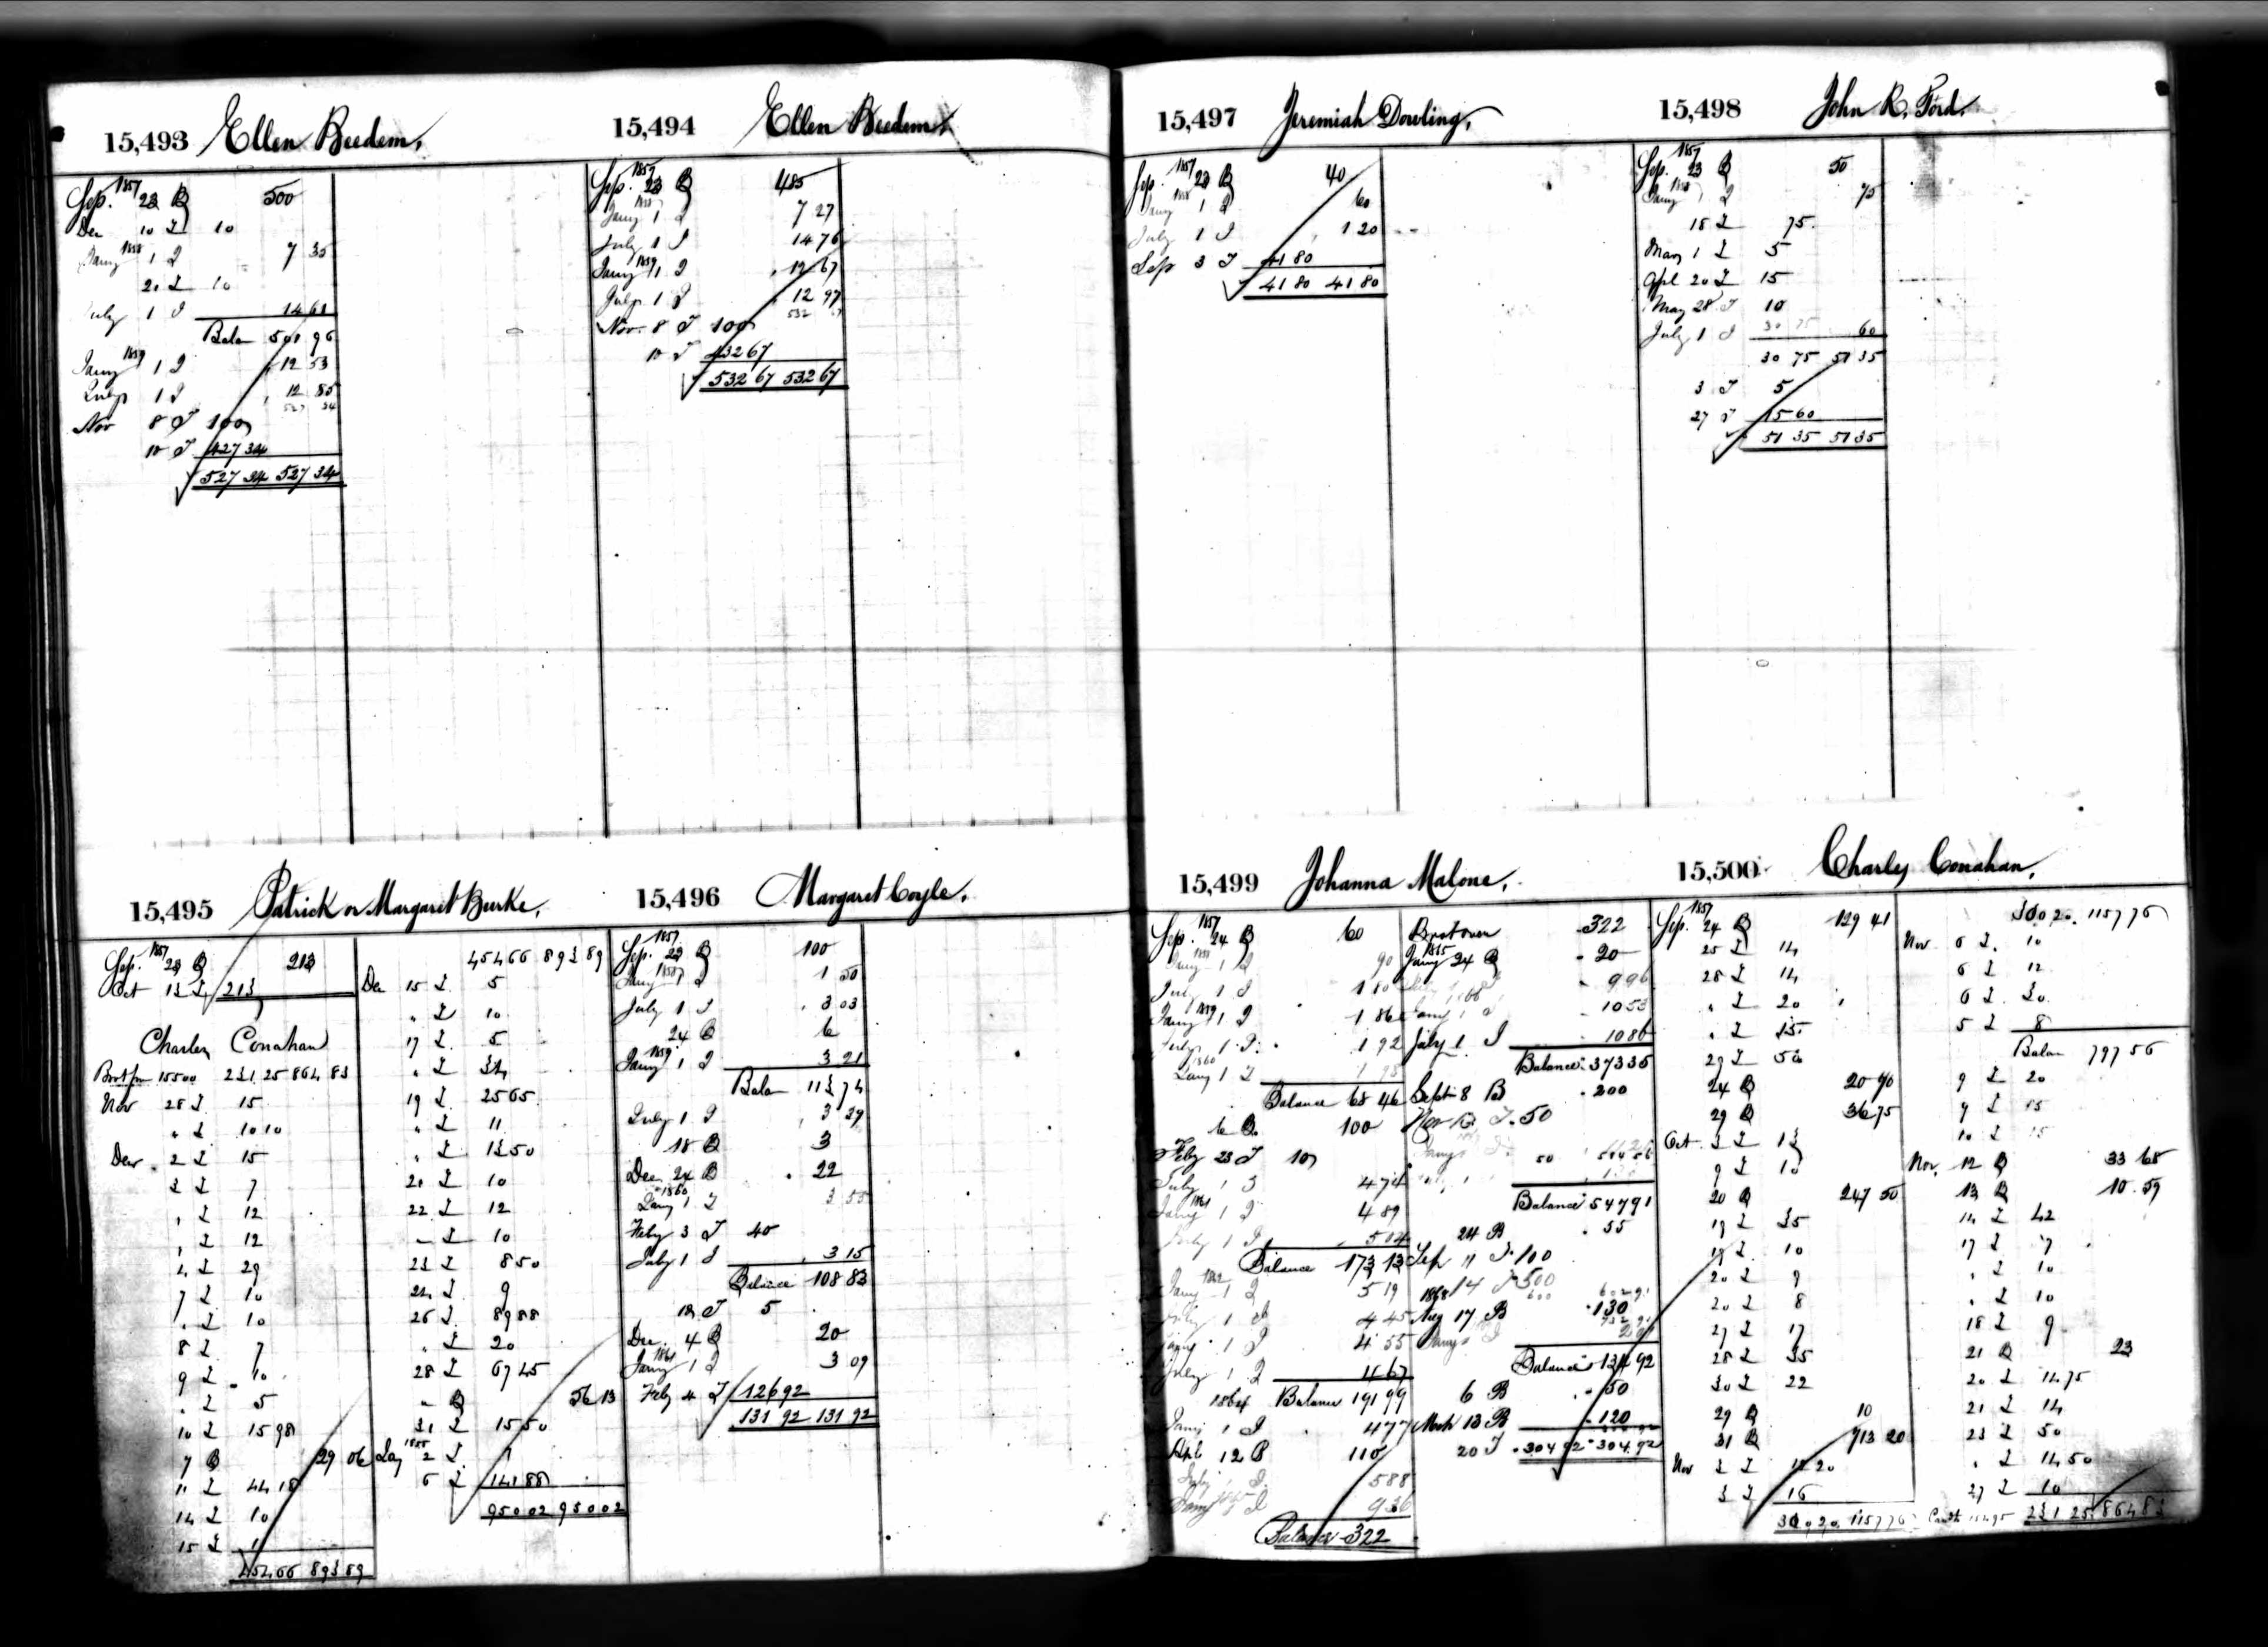 15,493 Ellen Beedem,
1857
Sep. 23 B 500
Dec 10 I 10
Jany 1858 1 I 7 35
20 I 10
July 1 I 14 61
Balan 501 96
Jany 1859 1 I 12 53
July 1 I 12 85
527 34
Nov 8 I 100
10 I 427 34
527 34 527 34
15,494 Ellen Beedem,
1857
Sep. 23 B 485
1858
Jany 1 I 7 27
July 1 I 14 76
Jany 1859 1 I 12 67
July 1 I 12 97
532 67
Nov. 8 I 100
10 I 432 67
532 67 532 67
15,495 Patrick or Margaret Burke,
1857
Sep. 23 B 213
Oct 13 I 213
Charles Conahan
Brot fm 15500 231 25 864 83
Nov 28 I 15
" I 10 10
Dec 2 I 15
3 I 7
" I 12
" I 12
29
7 I 10
" I 10
8 I 7
9 I 10
" I 5
10 I 15 98
7 B 29 06
11 I 44 18
14 I 10
15 I
454 66 893 89
454 66 893 89
Dec 15 I 5
" I 10
17 I 5
" I 34
19 I 25 65
" I 11
" I 13 50
21 I 10
22 I 12
" I 10
23 I 8 50
24 I 9
26 I 89 88
" I 20
28 I 67 45
" B 56 13
31 I 15 50
2 I 1
5 I 141 88
950 02 950 02
15,496 Margaret Coyle.
1857
Sep. 23 B 100
1858
Jany 1 I 1 50
July 1 I 3 03
24 B 6
1859
Jany 1 I 3 21
Balan 113 74
July 1 I 3 29
18 B 3
Dec 24 B 22
1860
Jany 1 I 3 55
Feby 3 I 40
July 1 I 3 15
Balance 108 83
18 I 5
Dec. 4 B 20
1861
Jany 1 I 3 09
Feb 4 I 126 92
131 92 131 92
15,497 Jeremiah Dowling,
1857
Sep. 23 B 40
1858
Jany 1 I 60
July 1 I 1 20
Sep 3 I 41 80
41 80 41 80
15,498 John R. Ford.
1857
Sep. 23 B 50
1858
Jany 1 I 75
18 I 75
Mar 1 I 5
Apl 20 I 15
May 28 I 10
July 1 I 30 75 60
30 75 51 35
3 I 5
27 I 15 60
51 35 51 35
15,499 Johanna Malone,
1857
Sep. 24 B 60
Jany 1 I 90
July 1 I 1 80
Jany 1859 1 I 1 86
July 1 I 1 92
1860
Jany 1 I 1 98
Balance 68 46
6 B 100
Feby 23 I 10
July 1 I 4 74
Jany 1861 1 I 4 89
July 1 I 5 04
Balance 173 13
Jany 1862 1 I 5 19
July 1 I 4 45
Jany 1 I 4 55
July 1 I 4 67
1864 Balance 191 99
Jany 1 I 4 77
Apl 12 B 110
July 1 I 5 88
Jany 1 I 9 36
Balance 322
Brot over 322
1865
Jany 24 B 20
9 96
10 53
July 1 I 10 86
Balance 373 35
Sept 8 B 200
Nov 13 I 50
Balance 547 91
24 B 55
Sep 11 I 100
14 I 500
1868
Aug 17 B 130
Balance 134 92
6 B 50
Mch 13 B 120
20 I 304 92 304 92
15,500 Charles Conahan,
1857
Sep. 24 B 129 41
25 I 14
28 I 14
" I 20
" I 15
29 I 56
24 B 20 90
29 B 36 75
Oct 3 I 13
9 I 10
20 B 247 50
19 I 35
19 I 10
20 I 9
20 I 8
27 I 17
28 I 35
30 I 22
29 B 10
31 B 713 20
Nov 2 I 12 20
3 I 16
360 20 1157 76
360 20 1157 76
Nov 6 I 10
6 I 12
6 I 30
5 I 8
Balan 797 56
9 I 20
9 I 15
10 I 15
Nov. 12 B 33 68
13 B 10 59
14 I 42
17 I 7
" I 10
" I 10
18 I 9
21 B 23
20 I 14 75
21 I 14
23 I 50
" I 14 50
27 I 10
231 25 864 83